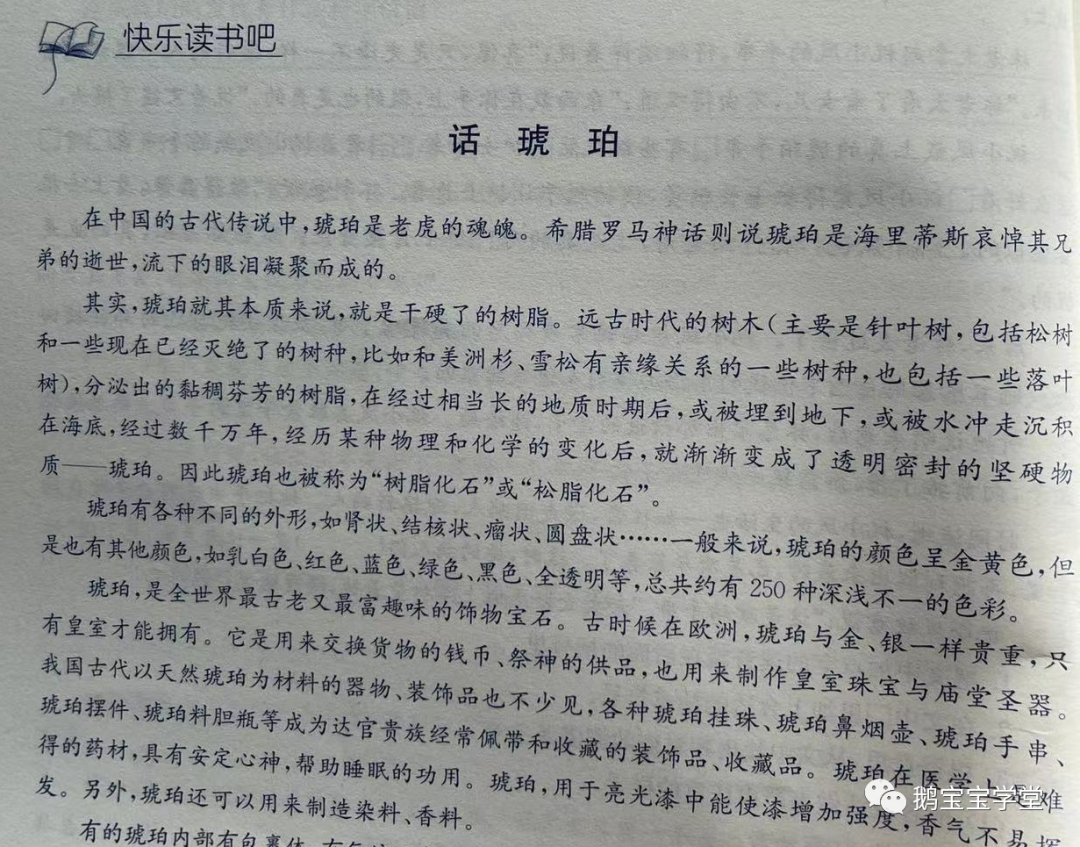 快乐读书吧
话 琥 珀
在中国的古代传说中,琥珀是老虎的魂魄。希腊罗马神话则说琥珀是海里蒂斯哀悼其兄
弟的逝世,流下的眼泪凝聚而成的。
其实,琥珀就其本质来说,就是干硬了的树脂。远古时代的树木(主要是针叶树,包括松树
和一些现在已经灭绝了的树种,比如和美洲杉、雪松有亲缘关系的一些树种,也包括一些落叶
树),分泌出的黏稠芬芳的树脂,在经过相当长的地质时期后,或被埋到地下,或被水冲走沉积
在海底,经过数千万年,经历某种物理和化学的变化后,就渐渐变成了透明密封的坚硬物
质——琥珀。因此琥珀也被称为“树脂化石”或“松脂化石”。
琥珀有各种不同的外形,如肾状、结核状、瘤状、圆盘状……一般来说,琥珀的颜色呈金黄色,但
是也有其他颜色,如乳白色、红色、蓝色、绿色、黑色、全透明等,总共约有250种深浅不一的色彩。
琥珀,是全世界最古老又最富趣味的饰物宝石。古时候在欧洲,琥珀与金、银一样贵重,只
有皇室才能拥有。它是用来交换货物的钱币、祭神的供品,也用来制作皇室珠宝与庙堂圣器。
我国古代以天然琥珀为材料的器物、装饰品也不少见,各种琥珀挂珠、琥珀鼻烟壶、琥珀手串、
琥珀摆件、琥珀料胆瓶等成为达官贵族经常佩带和收藏的装饰品、收藏品。琥珀在医学上是难
得的药材,具有安定心神,帮助睡眠的功用。琥珀,用于亮光漆中能使漆增加强度,香气不易挥
发。另外,琥珀还可以用来制造染料、香料。
有的琥珀内部有包裹体
鹅宝宝学堂